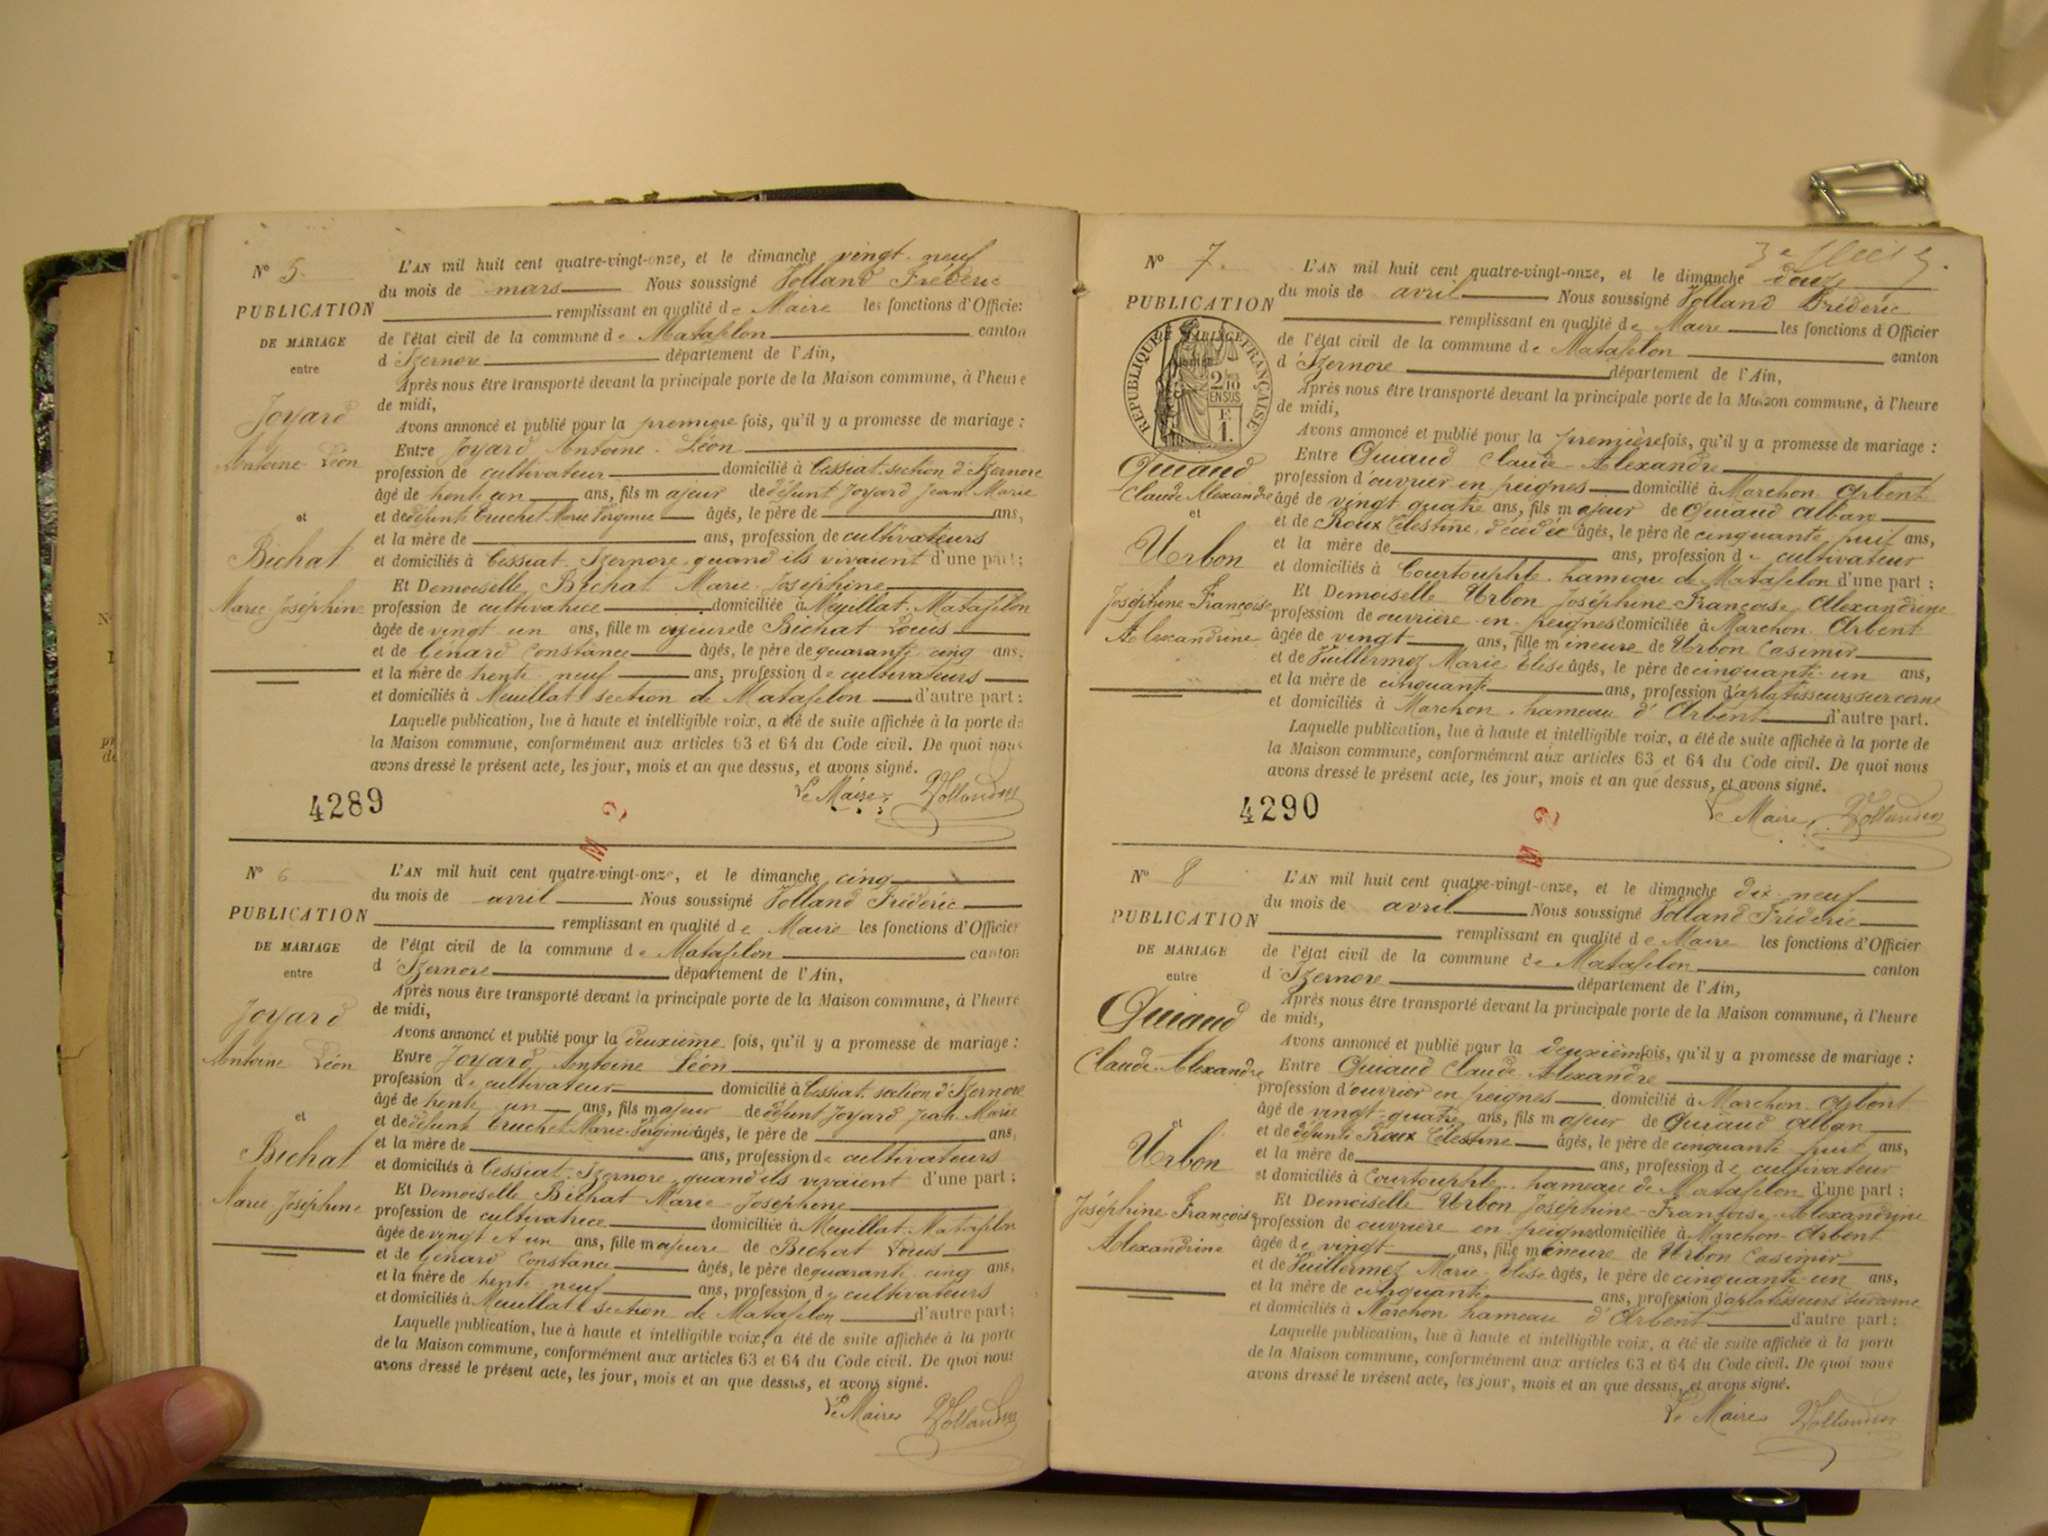 N° 5.
PUBLICATION
DE MARIAGE
entre
Joyard
Antoine Léon
et
Bichat
Marie-Joséphine
L'AN mil huit cent quatre-vingt-onze, et le dimanche vingt-neuf
du mois de mars Nous soussigné Volland Frédéric
remplissant en qualité de Maire les fonctions d'Officier
de l'état civil de la commune de Matafelon canton
d'Izernore département de l'Ain,
Après nous être transporté devant la principale porte de la Maison commune, à l'heure
de midi,
Avons annoncé et publié pour la première fois, qu'il y a promesse de mariage :
Entre Joyard Antoine-Léon
profession de cultivateur domicilié à Cessiat-section d'Izernore
âgé de trente un ans, fils majeur de défunt Joyard Jean Marie
et de défunte Truchet Marie Virginie âgés, le père de ans,
et la mère de ans, profession de cultivateurs
et domiciliés à Cessiat-Izernore quand ils vivaient d'une part;
Et Demoiselle Bichat Marie-Joséphine
profession de cultivatrice domiciliée à Meuillat-Matafelon
âgée de vingt un ans, fille majeure de Bichat Louis
et de Génard Constance âgés, le père de quarante-cinq ans,
et la mère de trente-neuf ans, profession de cultivateurs
et domiciliés à Meuillat section de Matafelon d'autre part;
Laquelle publication, lue à haute et intelligible voix, a été de suite affichée à la porte de
la Maison commune, conformément aux articles 63 et 64 du Code civil. De quoi nous
avons dressé le présent acte, les jour, mois et an que dessus, et avons signé.
Le Maire, Volland
4289
M 2
N° 6
PUBLICATION
DE MARIAGE
entre
Joyard
Antoine Léon
et
Bichat
Marie Joséphine
L'AN mil huit cent quatre-vingt-onze, et le dimanche cinq
du mois de avril Nous soussigné Volland Frédéric
remplissant en qualité de Maire les fonctions d'Officier
de l'état civil de la commune de Matafelon canton
d'Izernore département de l'Ain,
Après nous être transporté devant la principale porte de la Maison commune, à l'heure
de midi,
Avons annoncé et publié pour la deuxième fois, qu'il y a promesse de mariage :
Entre Joyard Antoine Léon
profession de cultivateur domicilié à Cessiat-section d'Izernore
âgé de trente un ans, fils majeur de défunt Joyard Jean Marie
et de défunte Truchet Marie-Virginie âgés, le père de ans,
et la mère de ans, profession de cultivateurs
et domiciliés à Cessiat-Izernore quand ils vivaient d'une part;
Et Demoiselle Bichat Marie-Joséphine
profession de cultivatrice domiciliée à Meuillat-Matafelon
âgée de vingt et un ans, fille majeure de Bichat Louis
et de Génard Constance âgés, le père de quarante-cinq ans,
et la mère de trente-neuf ans, profession de cultivateurs
et domiciliés à Meuillat section de Matafelon d'autre part;
Laquelle publication, lue à haute et intelligible voix, a été de suite affichée à la porte
de la Maison commune, conformément aux articles 63 et 64 du Code civil. De quoi nous
avons dressé le présent acte, les jour, mois et an que dessus, et avons signé.
Le Maire Volland
N° 7.
PUBLICATION
DE MARIAGE
RÉPUBLIQUE FRANÇAISE
2/10
EN SUS
F
1.
Quiaud
Claude Alexandre
et
Urbon
Joséphine Françoise
Alexandrine
L'AN mil huit cent quatre-vingt-onze, et le dimanche douze
du mois de avril Nous soussigné Volland Frédéric
remplissant en qualité de Maire les fonctions d'Officier
de l'état civil de la commune de Matafelon canton
d'Izernore département de l'Ain,
Après nous être transporté devant la principale porte de la Maison commune, à l'heure
de midi,
Avons annoncé et publié pour la première fois, qu'il y a promesse de mariage :
Entre Quiaud Claude-Alexandre
profession d'ouvrier en peignes domicilié à Marchon-Arbent
âgé de vingt quatre ans, fils majeur de Quiaud Alban
et de Roux Célestine, décédée âgés, le père de cinquante huit ans,
et la mère de ans, profession de cultivateur
et domiciliés à Courtouphle-hameau de Matafelon d'une part;
Et Demoiselle Urbon Joséphine-Françoise-Alexandrine
profession de ouvrière en peignes domiciliée à Marchon-Arbent
âgée de vingt ans, fille mineure de Urbon Casimir
et de Vuillermoz Marie Elise âgés, le père de cinquante-un ans,
et la mère de cinquante ans, profession d'aplatisseurs sur corne
et domiciliés à Marchon-hameau d'Arbent d'autre part.
Laquelle publication, lue à haute et intelligible voix, a été de suite affichée à la porte de
la Maison commune, conformément aux articles 63 et 64 du Code civil. De quoi nous
avons dressé le présent acte, les jour, mois et an que dessus, et avons signé.
Le Maire, Volland
4290
M 2
N° 8
PUBLICATION
DE MARIAGE
entre
Quiaud
Claude-Alexandre
et
Urbon
Joséphine Françoise
Alexandrine
L'AN mil huit cent quatre-vingt-onze, et le dimanche dix-neuf
du mois de avril Nous soussigné Volland Frédéric
remplissant en qualité de Maire les fonctions d'Officier
de l'état civil de la commune de Matafelon canton
d'Izernore département de l'Ain,
Après nous être transporté devant la principale porte de la Maison commune, à l'heure
de midi,
Avons annoncé et publié pour la deuxième fois, qu'il y a promesse de mariage :
Entre Quiaud Claude-Alexandre
profession d'ouvrier en peignes domicilié à Marchon-Arbent
âgé de vingt-quatre ans, fils majeur de Quiaud Alban
et de défunte Roux Célestine âgés, le père de cinquante huit ans,
et la mère de ans, profession de cultivateur
et domiciliés à Courtouphle-hameau de Matafelon d'une part;
Et Demoiselle Urbon Joséphine-Françoise-Alexandrine
profession de ouvrière en peignes domiciliée à Marchon-Arbent
âgée de vingt ans, fille mineure de Urbon Casimir
et de Vuillermoz Marie-Elise âgés, le père de cinquante-un ans,
et la mère de cinquante ans, profession d'aplatisseurs sur corne
et domiciliés à Marchon hameau d'Arbent d'autre part;
Laquelle publication, lue à haute et intelligible voix, a été de suite affichée à la porte
de la Maison commune, conformément aux articles 63 et 64 du Code civil. De quoi nous
avons dressé le présent acte, les jour, mois et an que dessus, et avons signé.
Le Maire Volland